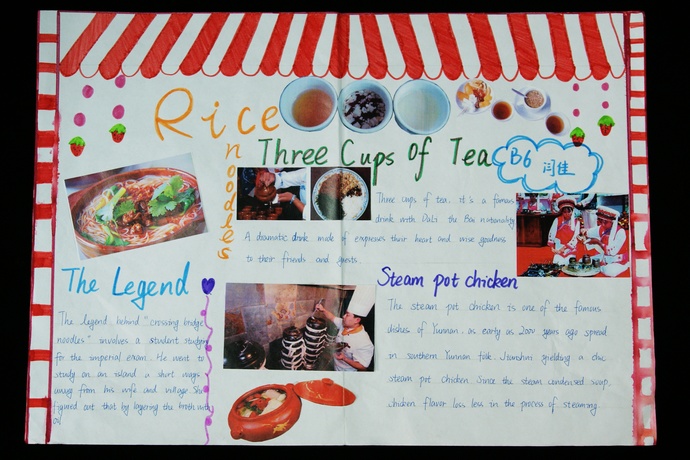 Rice
noodles
Three Cups of Tea
B6 闫佳
Three cups of tea. it is a famous
drink with Dali the Bai nationality
A dramatic drink made of expresses their heart and wise goodness
to their friends and guests.
The Legend
The legend behind "crossing bridge
noodles" involves a student studying
for the imperial exam. He went to
study on an island a short ways
away from his wife and village. She
figured out that by layering the broth with
oil
Steam pot chicken
The steam pot chicken is one of the famous
dishes of Yunnan. as early as 2000 years ago spread
in southern Yunnan folk. Jianshui yielding a chic
steam pot chicken. Since the steam condensed soup.
chicken flavor loss less in the process of steaming.